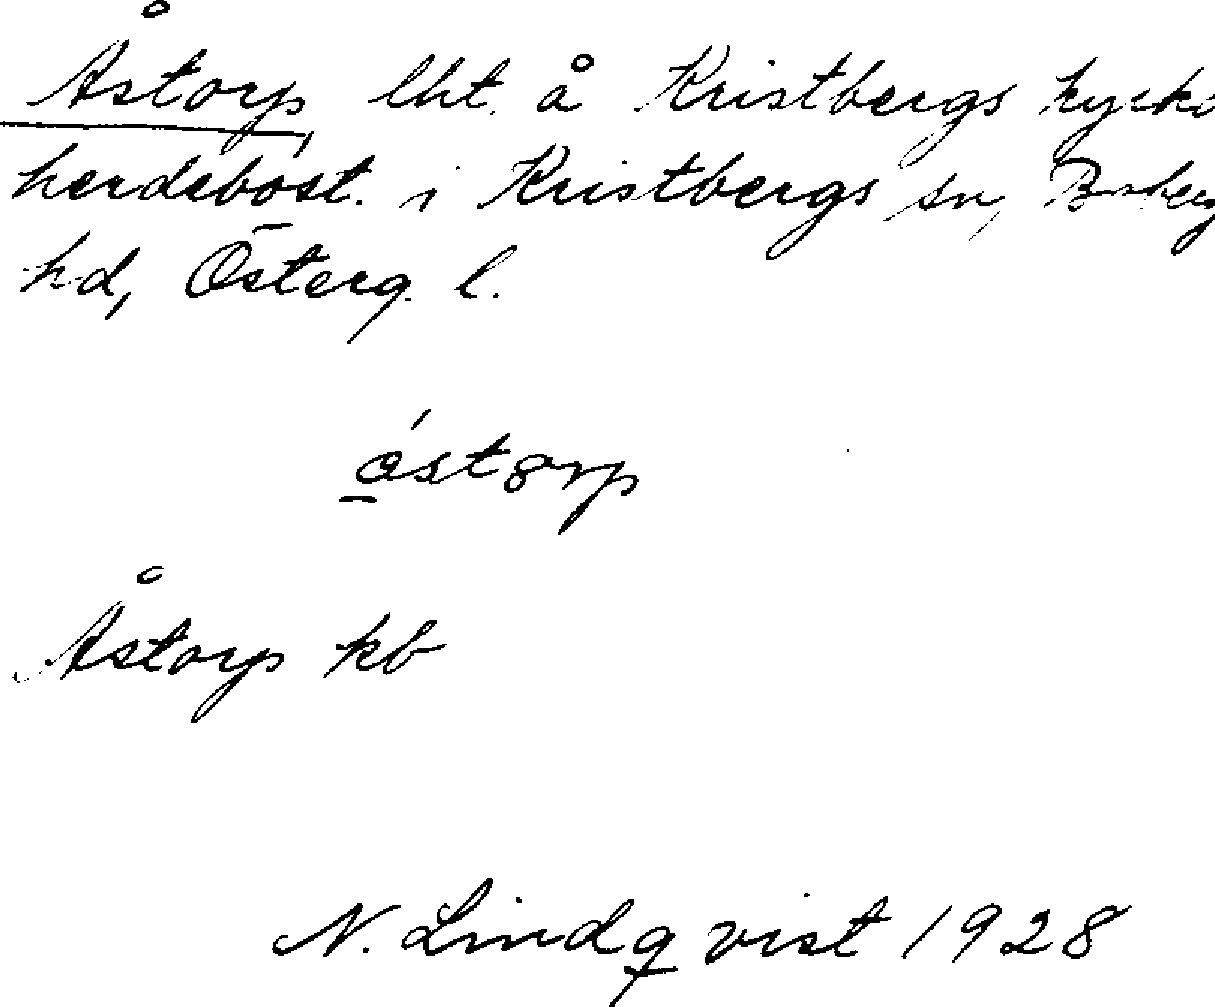 Åstorp, lht. å Kristbergs kyrko
herdebost. i Kristbergs sn, Boberg
hd, Österg. l.
óstorp
Åstorp kb
N. Lindqvist 1928